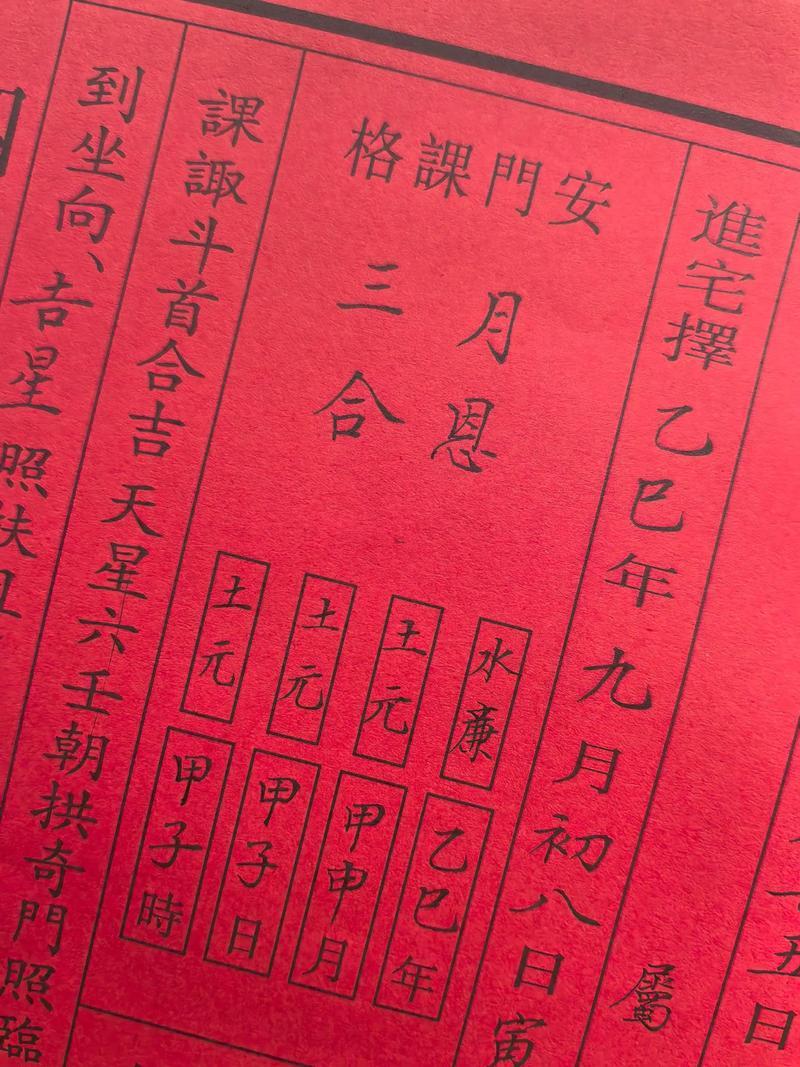 五日
屬
進宅擇 乙巳年 九月初八日寅
安門課格
月恩
三合
水廉
乙巳年
土元
甲申月
土元
甲子日
土元
甲子時
課諏斗首合吉 天星六壬朝拱奇門照臨
到坐向、吉星照扶